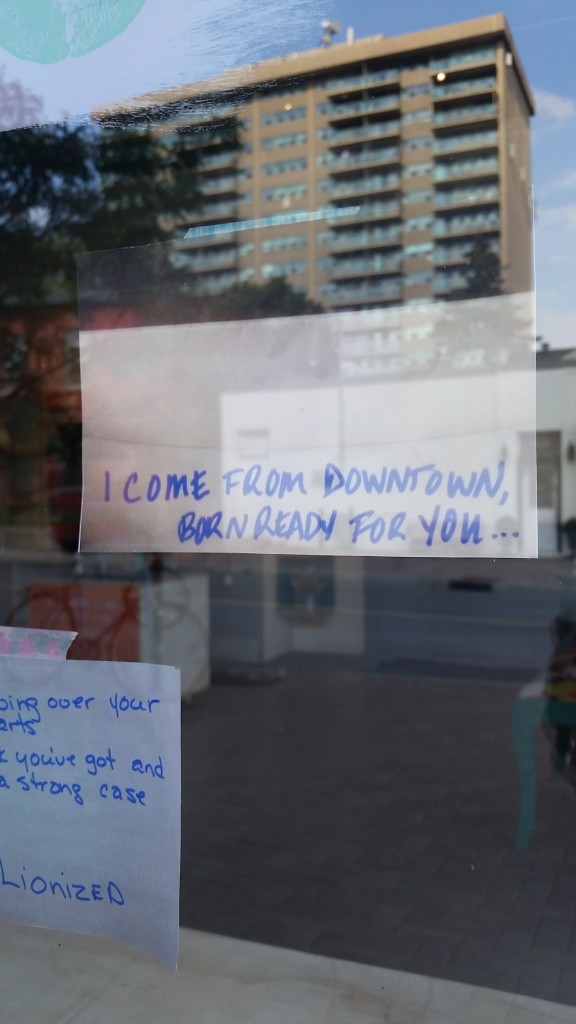 I COME FROM DOWNTOWN,
BORN READY FOR YOU...
over your
you've got and
a strong case
LIONIZED